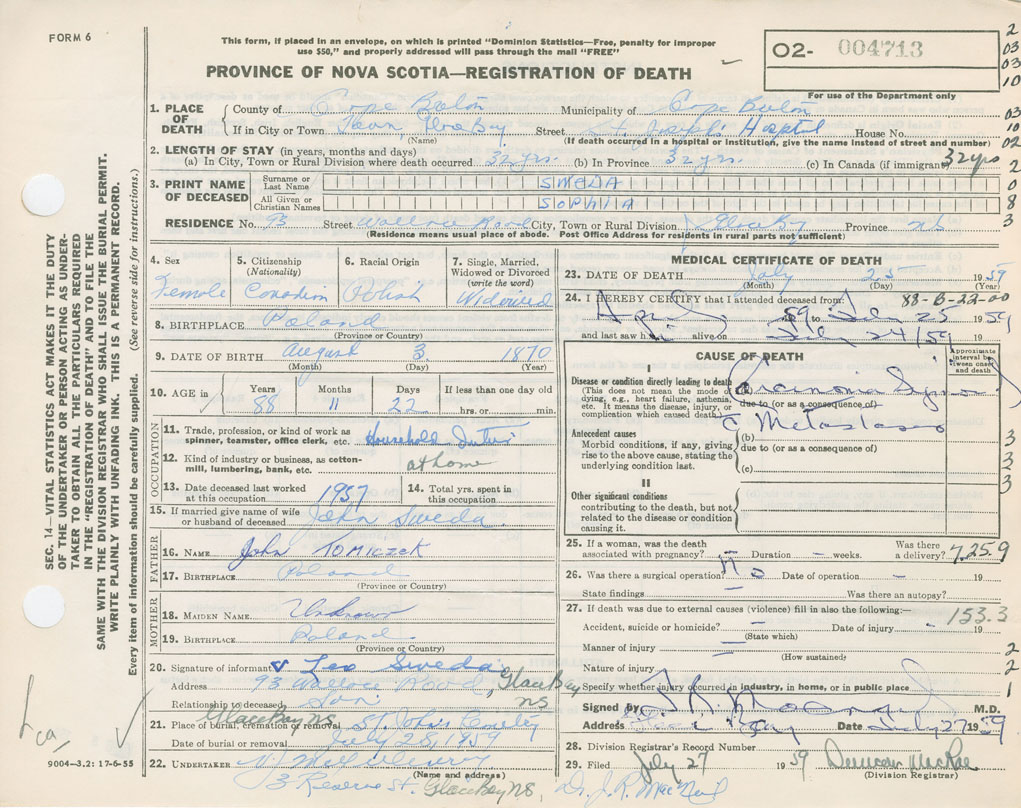 FORM 6
This form, if placed in an envelope, on which is printed "Dominion Statistics—Free, penalty for improper
use $50," and properly addressed will pass through the mail "FREE"
PROVINCE OF NOVA SCOTIA—REGISTRATION OF DEATH
02- 004713
For use of the Department only
2
03
03
10
03
10
02
2
0
8
3
SEC. 14—VITAL STATISTICS ACT MAKES IT THE DUTY
OF THE UNDERTAKER OR PERSON ACTING AS UNDER-
TAKER TO OBTAIN ALL THE PARTICULARS REQUIRED
IN THE "REGISTRATION OF DEATH" AND TO FILE THE
SAME WITH THE DIVISION REGISTRAR WHO SHALL ISSUE THE BURIAL PERMIT.
WRITE PLAINLY WITH UNFADING INK. THIS IS A PERMANENT RECORD.
Every item of information should be carefully supplied. (See reverse side for instructions.)
1. PLACE OF DEATH
County of Cape Breton Municipality of Cape Breton
If in City or Town Town, Glace Bay Street St. Joseph's Hospital House No.
(Name) (If death occurred in a hospital or institution, give the name instead of street and number)
2. LENGTH OF STAY (in years, months and days)
(a) In City, Town or Rural Division where death occurred 32 yrs. (b) In Province 32 yrs. (c) In Canada (if immigrant) 32 yrs
3. PRINT NAME OF DECEASED
Surname or Last Name SWEDA
All Given or Christian Names SOPHIA
RESIDENCE No. 93 Street Wallace Road City, Town or Rural Division Glace Bay Province NS
(Residence means usual place of abode. Post Office Address for residents in rural parts not sufficient)
4. Sex 5. Citizenship (Nationality) 6. Racial Origin 7. Single, Married, Widowed or Divorced (write the word)
Female Canadian Polish Widowed
8. BIRTHPLACE Poland
(Province or Country)
9. DATE OF BIRTH August 3 1870
(Month) (Day) (Year)
10. AGE in Years Months Days If less than one day old
88 11 22 hrs. or min.
OCCUPATION
11. Trade, profession, or kind of work as spinner, teamster, office clerk, etc. Household Duties
12. Kind of industry or business, as cotton-mill, lumbering, bank, etc. at home
13. Date deceased last worked at this occupation 1957 14. Total yrs. spent in this occupation
15. If married give name of wife or husband of deceased John Sweda
FATHER
16. NAME John TOMICZEK
17. BIRTHPLACE Poland
(Province or Country)
MOTHER
18. MAIDEN NAME Unknown
19. BIRTHPLACE Poland
(Province or Country)
20. Signature of informant Leo Sweda
Address 93 Wallace Road, Glace Bay NS
Relationship to deceased Son
21. Place of burial, cremation or removal Glace Bay NS St. John's
Date of burial or removal July 28, 1959
22. UNDERTAKER
(Name and address)
3 Reserve St. Glace Bay NS, Dr. J. R. MacNeil
9004—3.2: 17-6-55
MEDICAL CERTIFICATE OF DEATH
23. DATE OF DEATH July 25 1959
(Month) (Day)
88-B-22-00
24. I HEREBY CERTIFY that I attended deceased from:
April 59 to July 25 1959
and last saw h alive on July 24/59
CAUSE OF DEATH
Approximate interval between onset and death
I
Disease or condition directly leading to death
(This does not mean the mode of dying, e.g., heart failure, asthenia, etc. It means the disease, injury, or complication which caused death.)
(a) Carcinoma Sigmoid
due to (or as a consequence of)
c Metastases
Antecedent causes
Morbid conditions, if any, giving rise to the above cause, stating the underlying condition last.
(b)
due to (or as a consequence of)
(c)
II
Other significant conditions
contributing to the death, but not related to the disease or condition causing it.
3
3
3
3
25. If a woman, was the death associated with pregnancy? – Duration – weeks. Was there a delivery?
7.25.9
26. Was there a surgical operation? No Date of operation – 19
State findings – Was there an autopsy?
27. If death was due to external causes (violence) fill in also the following:—
153.3
Accident, suicide or homicide? – Date of injury 19
(State which)
Manner of injury – 2
(How sustained)
Nature of injury – 2
Specify whether injury occurred in industry, in home, or in public place 1
Signed by M.D.
Address Glace Bay Date July 27 1959
28. Division Registrar's Record Number
29. Filed July 27 1959 Duncan MacRae
(Division Registrar)